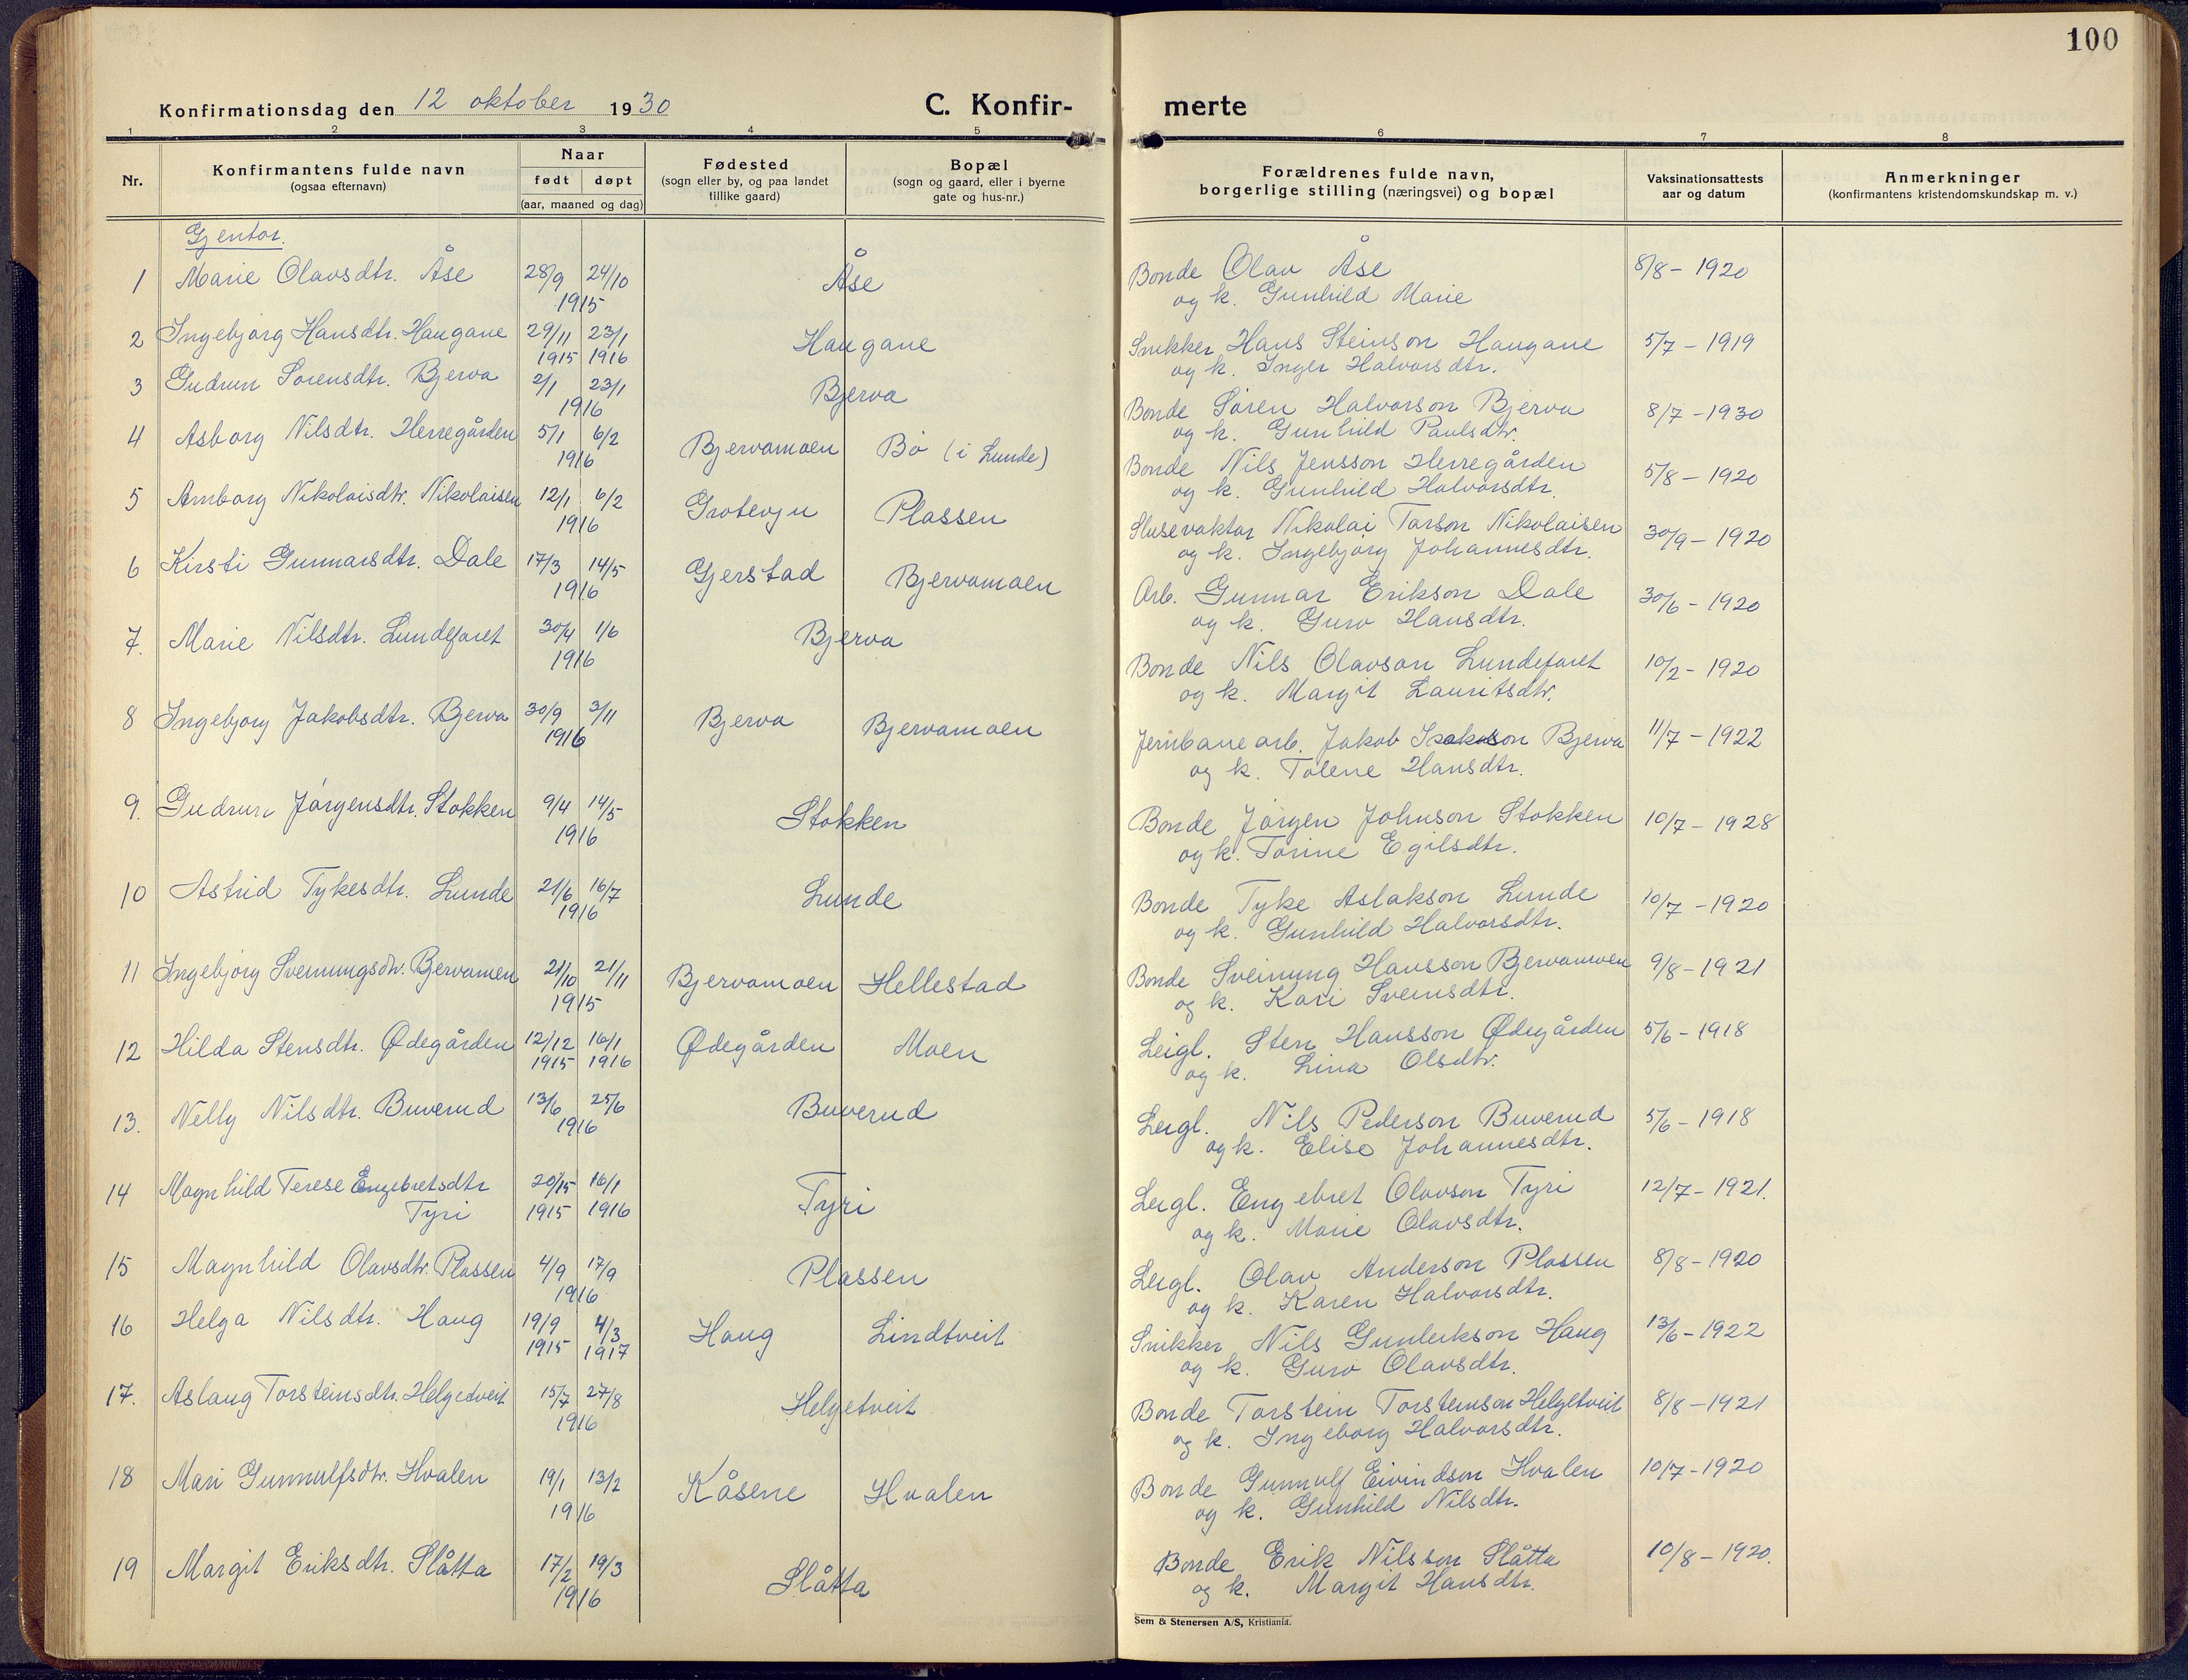 100
Konfirmationsdag den 12 oktober 1930
C. Konfir-
merte
1 2 3 4 5 6 7 8
Nr.
Konfirmantens fulde navn
(ogsaa efternavn)
Naar
født døpt
(aar, maaned og dag)
Fødested
(sogn eller by, og paa landet
tillike gaard)
Bopæl
(sogn og gaard, eller i byerne
gate og hus-nr.)
Forældrenes fulde navn,
borgerlige stilling (næringsvei) og bopæl
Vaksinationsattests
aar og datum
Anmerkninger
(konfirmantens kristendomskundskap m. v.)
Gjentor.
1 Marie Olavsdtr. Åse 28/9 24/10 Åse Bonde Olav Åse 8/8 - 1920
1915 og k. Gunhild Marie
2 Ingebjørg Hansdtr. Haugane 29/11 23/1 Haugane Snikker Hans Steinson Haugane 5/7 - 1919
1915 1916 og k. Inger Halvorsdtr.
3 Gudrun Sørensdtr. Bjerva 2/1 23/1 Bjerva Bonde Søren Halvorson Bjerva 8/7 - 1930
1916 og k. Gunhild Paulsdtr.
4 Asborg Nilsdtr. Herregården 5/1 6/2 Bjervamoen Bø (i Lunde) Bonde Nils Jensson Herregården 5/8 - 1920
1916 og k. Gunhild Halvorsdtr.
5 Arnborg Nikolaisdtr. Nikolaisen 12/1 6/2 Grotevju Plassen Slusevaktar Nikolai Tarson Nikolaisen 30/9 - 1920
1916 og k. Ingebjørg Johannesdtr.
6 Kirsti Gunnarsdtr. Dale 17/3 14/5 Gjerstad Bjervamoen Arb. Gunnar Erikson Dale 30/6 - 1920
1916 og k. Guro Hansdtr.
7. Marie Nilsdtr. Lundefaret 30/4 1/6 Bjerva Bonde Nils Olavson Lundefaret 10/2 - 1920
1916 og k. Margit Lauritsdtr.
8 Ingebjørg Jakobsdtr. Bjerva 30/9 3/11 Bjerva Bjervamoen Jernbanearb. Jakob Isakson Bjerva 11/7 - 1922
1916 og k. Tolene Hansdtr.
9. Gudrun Jørgensdtr. Stokken 9/4 14/5 Stokken Bonde Jørgen Johnson Stokken 10/7 - 1928
1916 og k. Torine Egilsdtr.
10 Astrid Tykesdtr. Lunde 21/6 16/7 Lunde Bonde Tyke Aslakson Lunde 10/7 - 1920
1916 og k. Gunhild Halvorsdtr.
11 Ingebjørg Sveinungsdtr. Bjervamoen 21/10 21/11 Bjervamoen Hellestad Bonde Sveinung Hansson Bjervamoen 9/8 - 1921
1915 og k. Kari Sveinsdtr.
12 Hilda Stensdtr. Ødegården 12/12 16/1 Ødegården Moen Leigl. Sten Hansson Ødegården 5/6 - 1918
1915 1916 og k. Lina Olsdtr.
13. Nelly Nilsdtr. Buverud 13/6 25/6 Buverud Leigl. Nils Pederson Buverud 5/6 - 1918
1916 og k. Elise Johannesdtr.
14 Magnhild Terese Engebretsdtr 20/15 16/1 Tyri Leigl. Engebret Olavson Tyri 12/7 - 1921.
Tyri 1915 1916 og k. Marie Olavsdtr.
15 Magnhild Olavsdtr. Plassen 4/9 17/9 Plassen Leigl. Olav Anderson Plassen 8/8 - 1920
1916 og k. Karen Halvorsdtr.
16 Helga Nilsdtr. Haug 19/9 4/3 Haug Lindtveit Snikker Nils Gunleikson Haug 13/6 - 1922
1915 1917 og k. Guro Olavsdtr.
17. Aslaug Torsteinsdtr. Helgetveit 15/7 27/8 Helgetveit Bonde Torstein Torsteinson Helgetveit 8/8 - 1921
1916 og k. Ingeborg Halvorsdtr.
18 Mari Gunnulfsdtr. Hvalen 19/1 13/2 Kåsene Hvalen Bonde Gunnulf Eivindson Hvalen 10/7 - 1920
1916 og k. Gunhild Nilsdtr.
19 Margit Eriksdtr. Slåtta 17/2 19/3 Slåtta Bonde Erik Nilsson Slåtta 10/8 - 1920.
1916 og k. Margit Hansdtr.
Sem & Stenersen A/S, Kristiania.